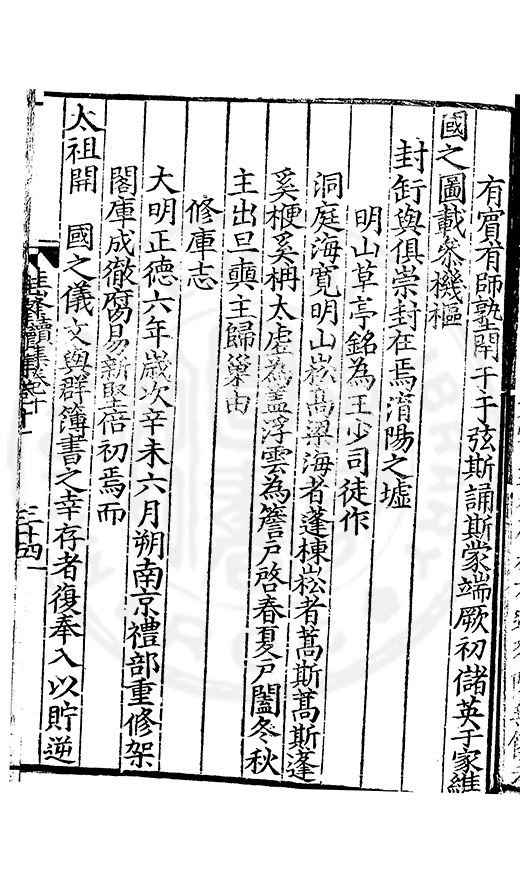 有賓有師塾開干于弦斯誦斯蒙端厥初儲英于家維
國之圖載參機樞
封鈃與俱崇封在焉濱陽之墟
明山草亭銘為王少司徒作
洞庭海寬明山崧高梁海者蓬棟崧者蒿斯蒿斯蓬
奚梗奚枏太虛為蓋浮雲為簷戸啓春夏戸闔冬秋
主出旦輿主歸巢由
修庫志
大明正德六年歲次辛未六月朔南京禮部重修架
閣庫成徹腐易新堅倍初焉而
太祖開 國之儀文與群簿書之幸存者復奉入以貯逆
三十四